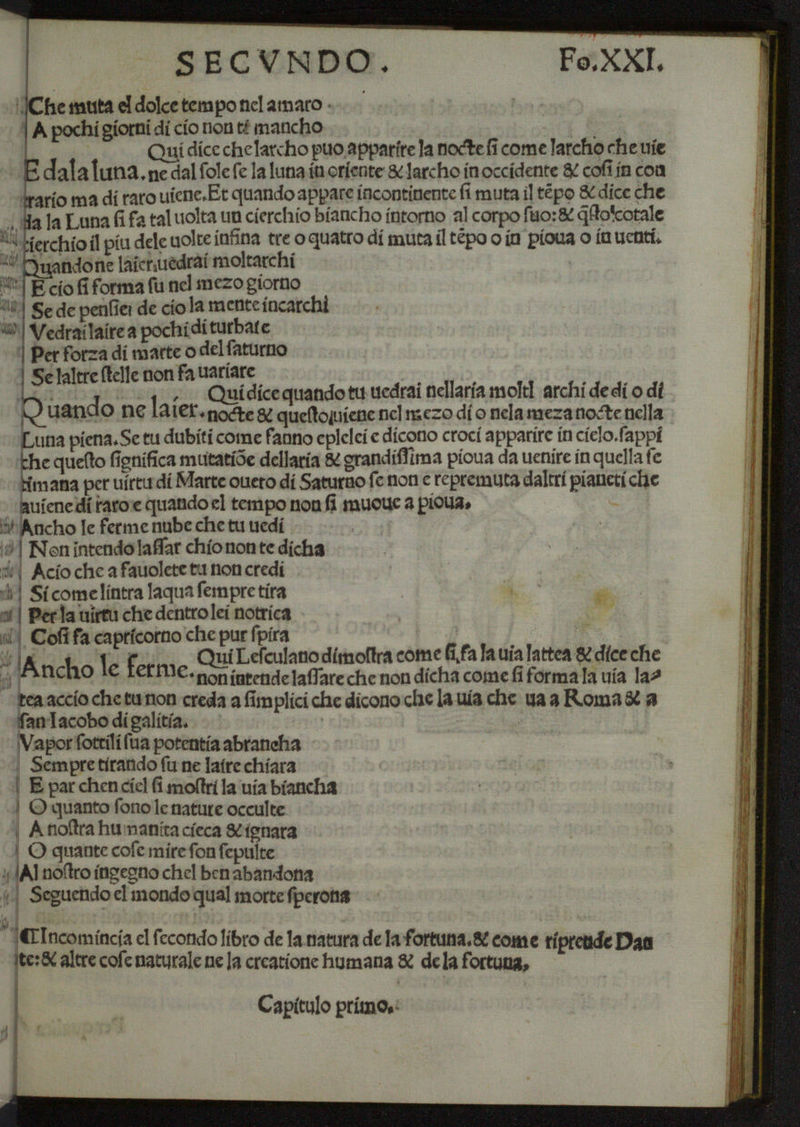 SECVNDO. Fo.XXI.
Che muta el dolce tempo nel amaro.
A pochi giorni di cio non tē mancho
Qui dice che larcho puo apparire la nocte si come larcho che uie
E dala luna. ne dal sole se la luna in oriente & larcho in occidente & cosi in con
trario ma di raro uiene. Et quando appare incontinente si muta il tēpo & dice che
Ha la Luna si fa tal uolta un cierchio biancho intorno al corpo suo: &
cierchio il piu dele uolte infina tre o quatro di muta il tēpo o in pioua o in uenti.
Quando ne laier uedrai molti archi
E cio si forma su nel mezo giorno
Se de pensier de cio la mente incarchi
Vedrai laire a pochi di turbate
Per forza di marte o del saturno
Se laltre stelle non fa uariare
Qui dice quando tu uedrai nellaria molti archi de di o di
Quando ne laier. nocte & questo uiene nel mezo di o nela meza nocte nella
Luna piena. Se tu dubiti come fanno eplelei e dicono croci apparire in cielo. sappi
che questo significa mutatiōe dellaria & grandissima pioua da uenire in quella se
timana per uirtu di Marte ouero di Saturno se non e repremuta daltri pianeti che
auiene di raro e quando el tempo non si muoue a pioua,
Ancho le ferme nube che tu uedi
Non intendo lassar chio non te dicha
Acio che a fauolete tu non credi
Si come lintra laqua sempre tira
Per la uirtu che dentro lei notrica
Cosi fa capricorno che pur spira
Qui Lesculano dimostra come si fa la uia lattea & dice che
Ancho le ferme. non intende lassare che non dicha come si forma la uia la⸗
tea accio che tu non creda a simplici che dicono che la uia che ua a Roma & a
san Iacobo di galitia.
Vapor sottili sua potentia abrancha
Sempre tirando su ne laire chiara
E par chen ciel si mostri la uia biancha
O quanto sono le nature occulte
A nostra humanita cieca & ignara
O quante cose mire son sepulte
Al nostro ingegno chel ben abandona
Seguendo el mondo qual morte sperona
¶Incomincia el secondo libro de la natura de la fortuna. & come riprende Dan
te: & altre cose naturale ne la creatione humana & de la fortuna,
Capitulo primo.